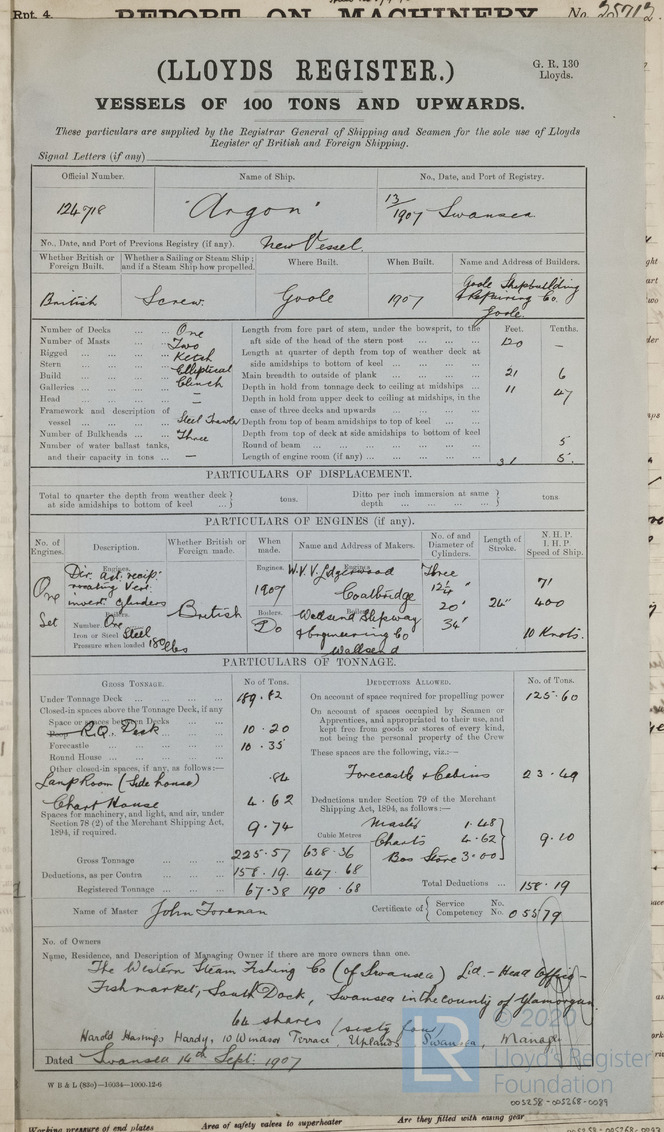 Rpt. 4.
REPORT ON MACHINERY
No. 25712
(LLOYDS REGISTER.)
G. R. 130
Lloyds.
VESSELS OF 100 TONS AND UPWARDS.
These particulars are supplied by the Registrar General of Shipping and Seamen for the sole use of Lloyds
Register of British and Foreign Shipping.
Signal Letters (if any)
Official Number. Name of Ship. No., Date, and Port of Registry.
124718 "Argon" 13/1907 Swansea.
No., Date, and Port of Previous Registry (if any). New Vessel.
Whether British or Foreign Built. Whether a Sailing or Steam Ship; and if a Steam Ship how propelled. Where Built. When Built. Name and Address of Builders.
British Screw. Goole 1907 Goole Shipbuilding & Repairing Co. Goole
Number of Decks One
Number of Masts Two
Rigged Ketch
Stern Elliptical
Build Clinch
Galleries —
Head —
Framework and description of vessel Steel Trawler
Number of Bulkheads Three
Number of water ballast tanks, and their capacity in tons —
Feet. Tenths.
Length from fore part of stem, under the bowsprit, to the aft side of the head of the stern post 120 —
Length at quarter of depth from top of weather deck at side amidships to bottom of keel
Main breadth to outside of plank 21 6
Depth in hold from tonnage deck to ceiling at midships 11 47
Depth in hold from upper deck to ceiling at midships, in the case of three decks and upwards
Depth from top of beam amidships to top of keel
Depth from top of deck at side amidships to bottom of keel
Round of beam 5
Length of engine room (if any) 31 5.
PARTICULARS OF DISPLACEMENT.
Total to quarter the depth from weather deck at side amidships to bottom of keel tons.
Ditto per inch immersion at same depth tons.
PARTICULARS OF ENGINES (if any).
No. of Engines. Description. Whether British or Foreign made. When made. Name and Address of Makers. No. of and Diameter of Cylinders. Length of Stroke. N. H. P. I. H. P. Speed of Ship.
One Set
Engines. Dir. act. recip: rocating Vert. invert. cylinders
British
Engines. 1907
Engines. W. V. V. Coatbridge
Three
20"
34"
24"
71
400
10 Knots.
Boilers.
Number One
Iron or Steel Steel
Pressure when loaded 180 lbs
Boilers. Do
Boilers. Wallsend Slipway & Engineering Co Wallsend
PARTICULARS OF TONNAGE.
GROSS TONNAGE. No of Tons.
Under Tonnage Deck 189.82
Closed-in spaces above the Tonnage Deck, if any
Space or spaces between Decks
Poop R.Q. Deck 10.20
Forecastle 10.35
Round House
Other closed-in spaces, if any, as follows:—
Lamp Room (Side house) .84
Chart House 4.62
Spaces for machinery, and light, and air, under Section 78 (2) of the Merchant Shipping Act, 1894, if required. 9.74
Cubic Metres
Gross Tonnage 225.57 638.36
Deductions, as per Contra 158.19. 447.68
Registered Tonnage 67.38 190.68
DEDUCTIONS ALLOWED. No. of Tons.
On account of space required for propelling power 125.60
On account of spaces occupied by Seamen or Apprentices, and appropriated to their use, and kept free from goods or stores of every kind, not being the personal property of the Crew
These spaces are the following, viz.:—
Forecastle & Cabins 23.49
Deductions under Section 79 of the Merchant Shipping Act, 1894, as follows:—
Master 1.48
Charts 4.62
Bos Store 3.00
9.10
Total Deductions 158.19
Name of Master John Foreman
Certificate of Service No.
Competency No. 05579
No. of Owners
Name, Residence, and Description of Managing Owner if there are more owners than one.
The Western Steam Fishing Co (of Swansea) Ltd. - Head Office -
Fishmarket, South Dock, Swansea in the county of Glamorgan
64 shares (sixty four)
Harold Hastings Hardy, 10 Windsor Terrace, Uplands Swansea, Manager
Dated Swansea 14th Sept: 1907
W B & L (83o)—16034—1000-12-6
© 2020
LR
Lloyd's Register
Foundation
005258-005268-0089
Working pressure of end plates
Area of safety valves to superheater
Are they fitted with easing gear